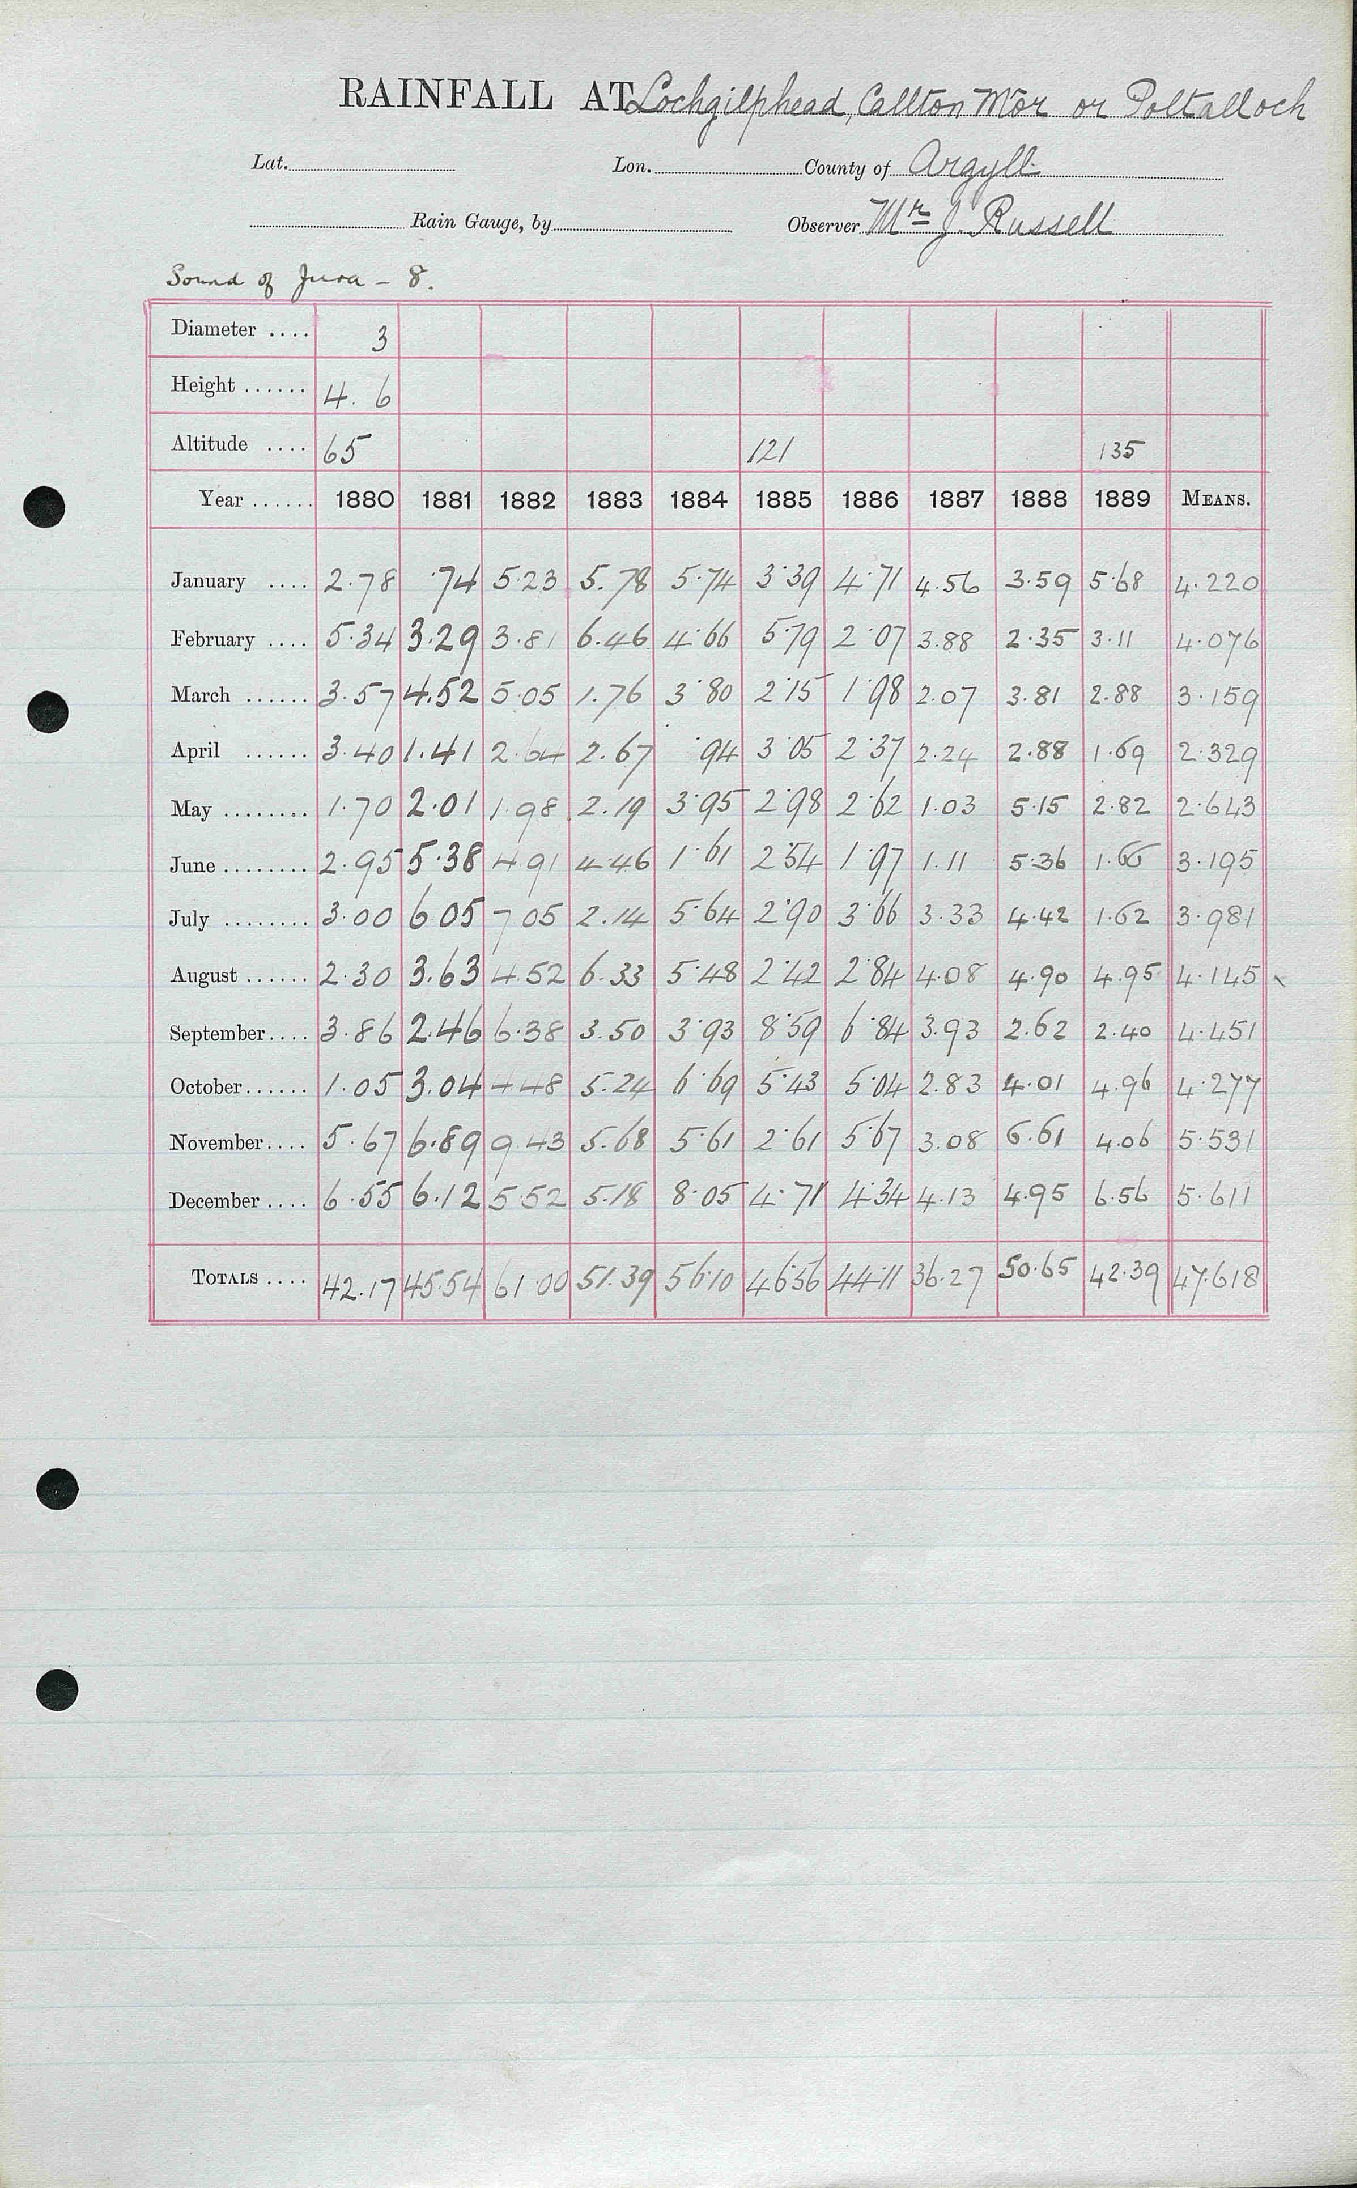 RAINFALL AT Lochgilphead, Callton Mör or Poltalloch
Lat. Lon. County of Argyll
Rain Gauge, by Observer Mr J. Russell
Sound of Jura - 8.
Diameter .... 3
Height ...... 4. 6
Altitude .... 65 121 135
Year ...... 1880 1881 1882 1883 1884 1885 1886 1887 1888 1889 MEANS.
January .... 2.78 .74 5.23 5.78 5.74 3.39 4.71 4.56 3.59 5.68 4.220
February .... 5.34 3.29 3.81 6.46 4.66 5.79 2.07 3.88 2.35 3.11 4.076
March ...... 3.57 4.52 5.05 1.76 3.80 2.15 1.98 2.07 3.81 2.88 3.159
April ...... 3.40 1.41 2.64 2.67 .94 3.05 2.37 2.24 2.88 1.69 2.329
May ........ 1.70 2.01 1.98 2.19 3.95 2.98 2.62 1.03 5.15 2.82 2.643
June ........ 2.95 5.38 4 91 4.46 1.61 2.54 1.97 1.11 5.36 1.66 3.195
July ........ 3.00 6 05 7 05 2.14 5.64 2.90 3.66 3.33 4.42 1.62 3.981
August ...... 2.30 3.63 4.52 6.33 5.48 2.42 2.84 4.08 4.90 4.95 4.145
September.... 3.86 2.46 6.38 3.50 3.93 8.59 6.84 3.93 2.62 2.40 4.451
October...... 1.05 3.04 4 48 5.24 6.69 5.43 5.04 2.83 4.01 4.96 4.277
November.... 5.67 6.89 9.43 5.68 5.61 2.61 5.67 3.08 6.61 4.06 5.531
December .... 6.55 6.12 5 52 5.18 8.05 4.71 4.34 4.13 4.95 6.56 5.611
TOTALS .... 42.17 45.54 61.00 51.39 56.10 46.56 44.11 36.27 50.65 42.39 47.618